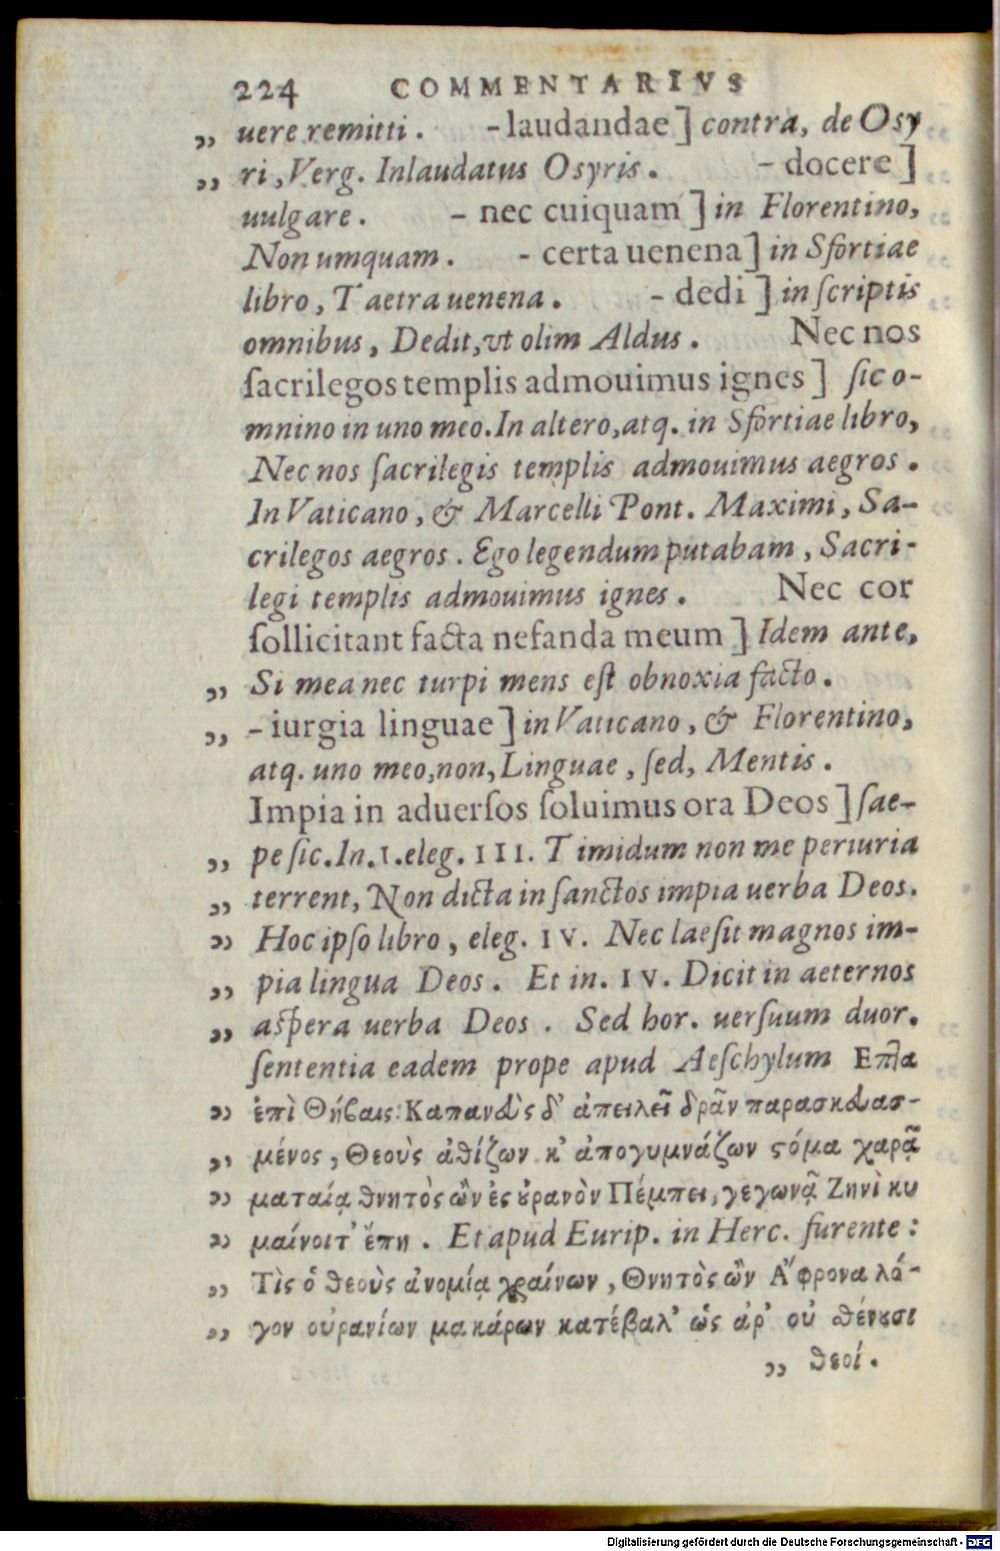 224 COMMENTARIVS
„ uere remitti. -laudandae] contra, de Osy
„ ri, Verg. Inlaudatus Osyris. - docere]
uulgare. - nec cuiquam] in Florentino,
Non umquam. - certa uenena] in Sfortiae
libro, Taetra uenena. - dedi] in ſcriptis
omnibus, Dedit, vt olim Aldus. Nec nos
ſacrilegos templis admouimus ignes] ſic o-
mnino in uno meo. In altero, atq. in Sfortiae libro,
Nec nos ſacrilegis templis admouimus aegros.
In Vaticano, & Marcelli Pont. Maximi, Sa-
crilegos aegros. Ego legendum putabam, Sacri-
legi templis admouimus ignes. Nec cor
ſollicitant facta nefanda meum] Idem ante,
„ Si mea nec turpi mens eſt obnoxia facto.
„ - iurgia linguae] in Vaticano, & Florentino,
atq. uno meo, non, Linguae, ſed, Mentis.
Impia in aduerſos ſoluimus ora Deos] ſae-
„ pe ſic. In. I. eleg. III. Timidum non me periuria
„ terrent, Non dicta in ſanctos impia uerba Deos.
„ Hoc ipſo libro, eleg. IV. Nec laeſit magnos im-
„ pia lingua Deos. Et in. IV. Dicit in aeternos
„ aſpera uerba Deos. Sed hor. uerſuum duor.
ſententia eadem prope apud Aeſchylum Επτα
„ ἐπὶ Θήβαις: Καπανεὺς δ' ἀπειλεῖ δρᾶν παρασκευασ-
„ μένος, Θεοὺς ἀθίζων κ' ἀπογυμνάζων στόμα χαρᾷ
„ ματαίᾳ θνητὸς ὢν ἐς οὐρανὸν Πέμπει, γεγωνᾷ Ζηνὶ κυ
„ μαίνοιτ' ἔπη. Et apud Eurip. in Herc. furente:
„ Τὶς ὁ θεοὺς ἀνομίᾳ χραίνων, Θνητὸς ὢν Ἄφρονα λό-
„ γον οὐρανίων μακάρων κατέβαλ' ὡς ἀρ' οὐ σθένουσι
„ θεοί.
Digitalisierung gefördert durch die Deutsche Forschungsgemeinschaft - DFG